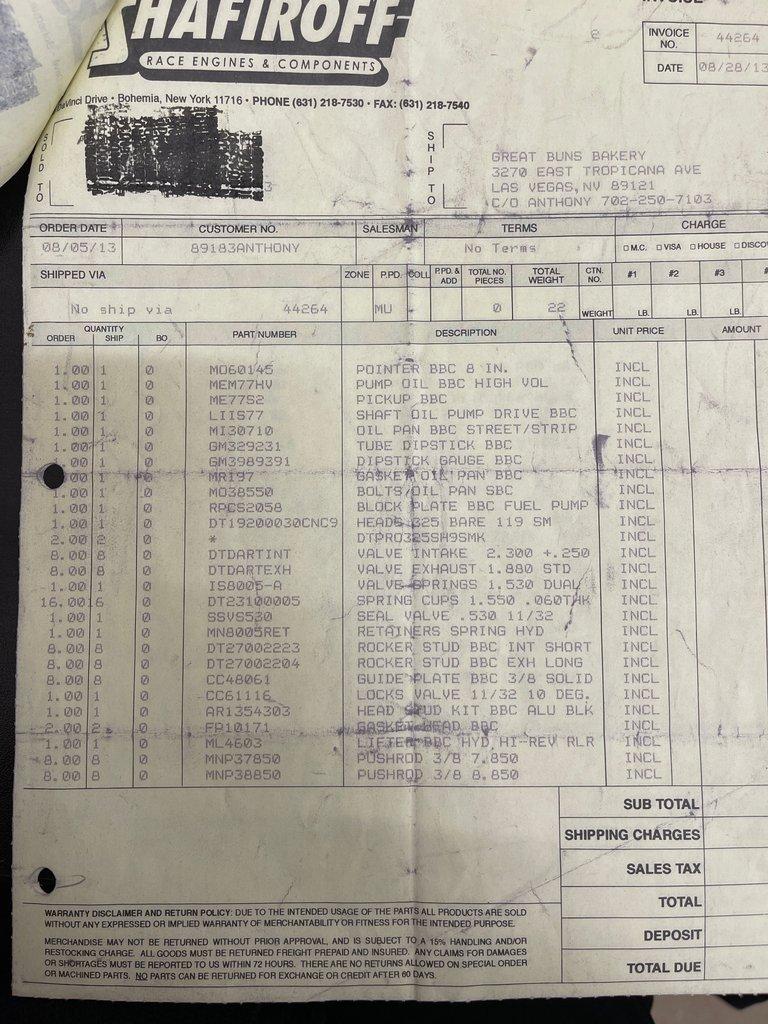 SHAFIROFF
RACE ENGINES & COMPONENTS
DaVinci Drive • Bohemia, New York 11716 • PHONE (631) 218-7530 • FAX: (631) 218-7540
INVOICE
INVOICE NO. 44264
DATE 08/28/13
SOLD TO
3
SHIP TO
GREAT BUNS BAKERY
3270 EAST TROPICANA AVE
LAS VEGAS,NV 89121
C/O ANTHONY 702-250-7103
ORDER DATE CUSTOMER NO. SALESMAN TERMS CHARGE
08/05/13 89183ANTHONY No Terms M.C. VISA HOUSE DISCO
SHIPPED VIA ZONE P.PD. COLL P.PD. & ADD TOTAL NO. PIECES TOTAL WEIGHT CTN. NO. #1 #2 #3 #
No ship via 44264 MU 0 22 WEIGHT LB. LB. LB.
QUANTITY
ORDER SHIP BO PART NUMBER DESCRIPTION UNIT PRICE AMOUNT
1.00 1 0 MO60145 POINTER BBC 8 IN. INCL
1.00 1 0 MEM77HV PUMP OIL BBC HIGH VOL INCL
1.00 1 0 ME77S2 PICKUP BBC INCL
1.00 1 0 LIIS77 SHAFT OIL PUMP DRIVE BBC INCL
1.00 1 0 MI30710 OIL PAN BBC STREET/STRIP INCL
1.00 1 0 GM329231 TUBE DIPSTICK BBC INCL
1.00 1 0 GM3989391 DIPSTICK GAUGE BBC INCL
1.00 1 0 MR197 GASKET OIL PAN BBC INCL
1.00 1 0 MO38550 BOLTS/OIL PAN SBC INCL
1.00 1 0 RPCS2058 BLOCK PLATE BBC FUEL PUMP INCL
1.00 1 0 DT19200030CNC9 HEADS 325 BARE 119 SM INCL
2.00 2 0 * DTPRO325SH9SMK INCL
8.00 8 0 DTDARTINT VALVE INTAKE 2.300 +.250 INCL
8.00 8 0 DTDARTEXH VALVE EXHAUST 1.880 STD INCL
1.00 1 0 IS8005-A VALVE SPRINGS 1.530 DUAL INCL
16.00 16 0 DT23100005 SPRING CUPS 1.550 .060THK INCL
1.00 1 0 SSVS530 SEAL VALVE .530 11/32 INCL
1.00 1 0 MN8005RET RETAINERS SPRING HYD INCL
8.00 8 0 DT27002223 ROCKER STUD BBC INT SHORT INCL
8.00 8 0 DT27002204 ROCKER STUD BBC EXH LONG INCL
8.00 8 0 CC48061 GUIDE PLATE BBC 3/8 SOLID INCL
1.00 1 0 CC61116 LOCKS VALVE 11/32 10 DEG. INCL
1.00 1 0 AR1354303 HEAD STUD KIT BBC ALU BLK INCL
2.00 2 0 FP10171 GASKET HEAD BBC INCL
1.00 1 0 ML4603 LIFTER BBC HYD HI-REV RLR INCL
8.00 8 0 MNP37850 PUSHROD 3/8 7.850 INCL
8.00 8 0 MNP38850 PUSHROD 3/8 8.850 INCL
SUB TOTAL
SHIPPING CHARGES
SALES TAX
TOTAL
DEPOSIT
TOTAL DUE
WARRANTY DISCLAIMER AND RETURN POLICY: DUE TO THE INTENDED USAGE OF THE PARTS ALL PRODUCTS ARE SOLD
WITHOUT ANY EXPRESSED OR IMPLIED WARRANTY OF MERCHANTABILITY OR FITNESS FOR THE INTENDED PURPOSE.
MERCHANDISE MAY NOT BE RETURNED WITHOUT PRIOR APPROVAL, AND IS SUBJECT TO A 15% HANDLING AND/OR
RESTOCKING CHARGE. ALL GOODS MUST BE RETURNED FREIGHT PREPAID AND INSURED. ANY CLAIMS FOR DAMAGES
OR SHORTAGES MUST BE REPORTED TO US WITHIN 72 HOURS. THERE ARE NO RETURNS ALLOWED ON SPECIAL ORDER
OR MACHINED PARTS. NO PARTS CAN BE RETURNED FOR EXCHANGE OR CREDIT AFTER 60 DAYS.